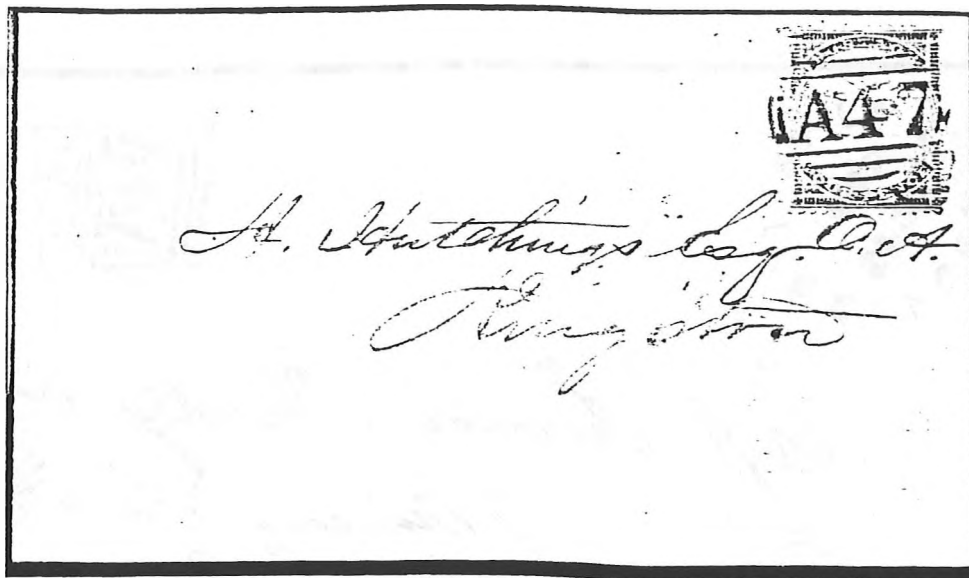 A47
H. Hutchings Esq. C.A.
Kingston